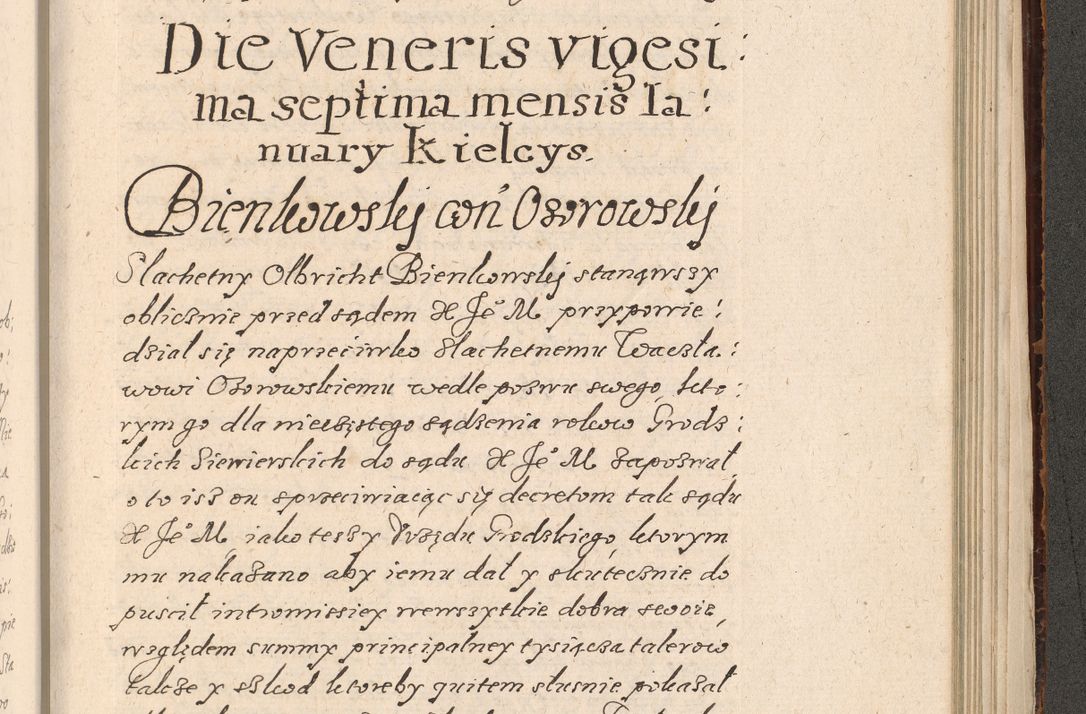 Die Veneris vigesi:
ma septima mensis Ia:
nuary Kielcys.
Bienkowskij con Ozorowskij
Slachetny Olbricht Bienkowskij stanąwszy
oblicznie przed sądem X Je° M przypowie:
dział się naprzeciwko slachetnemu Wacza:
wowi Ozorowskiemu wedle pozwu swego, kto:
rym go dla nieszęstego sądzenia rokow Grodz:
kich Siewierskich do sądu X Je° M zapozwał
o to isz on sprzeciwiaiąc się decretom tak sądu
X Je° M iako teszy Vrzędu Grodskiego ktorym
mu nakazano aby iemu dał y skutecznie do
puscił intromissiey wewszytkie dobra swoie
względem summy principalney tysiącza talerow
takze y szkod ktoreby quitem slusnie pokazał